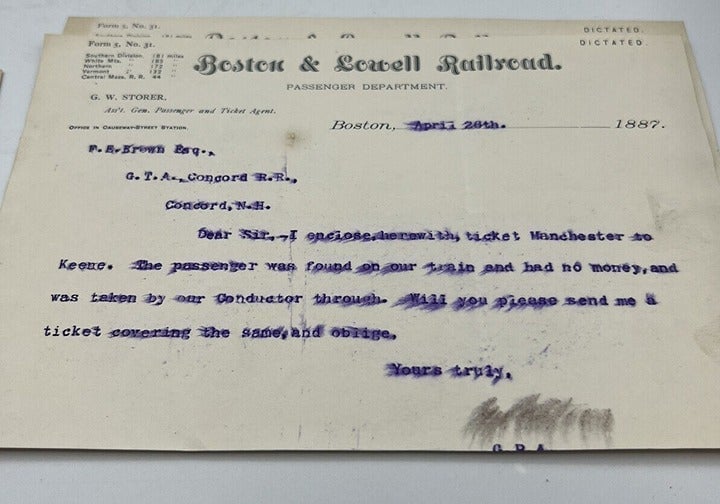 Form 5, No. 31.
DICTATED.
Form 5, No. 31.
DICTATED.
Southern Division 181 miles
White Mts. " 185 "
Northern " 172 "
Vermont " 132 "
Central Mass. R. R. 44 "
Boston & Lowell Railroad.
PASSENGER DEPARTMENT.
G. W. STORER,
Ass't. Gen. Passenger and Ticket Agent.
OFFICE IN CAUSEWAY-STREET STATION.
Boston, April 26th. 1887.
F.E.Brown Esq.,
G.T.A., Concord R.R.,
Concord, N.H.
Dear Sir,-I enclose, herewith, ticket Manchester to
Keene. The passenger was found on our train and had no money, and
was taken by our Conductor through. Will you please send me a
ticket covering the same, and oblige,
Yours truly,
G.P.A.